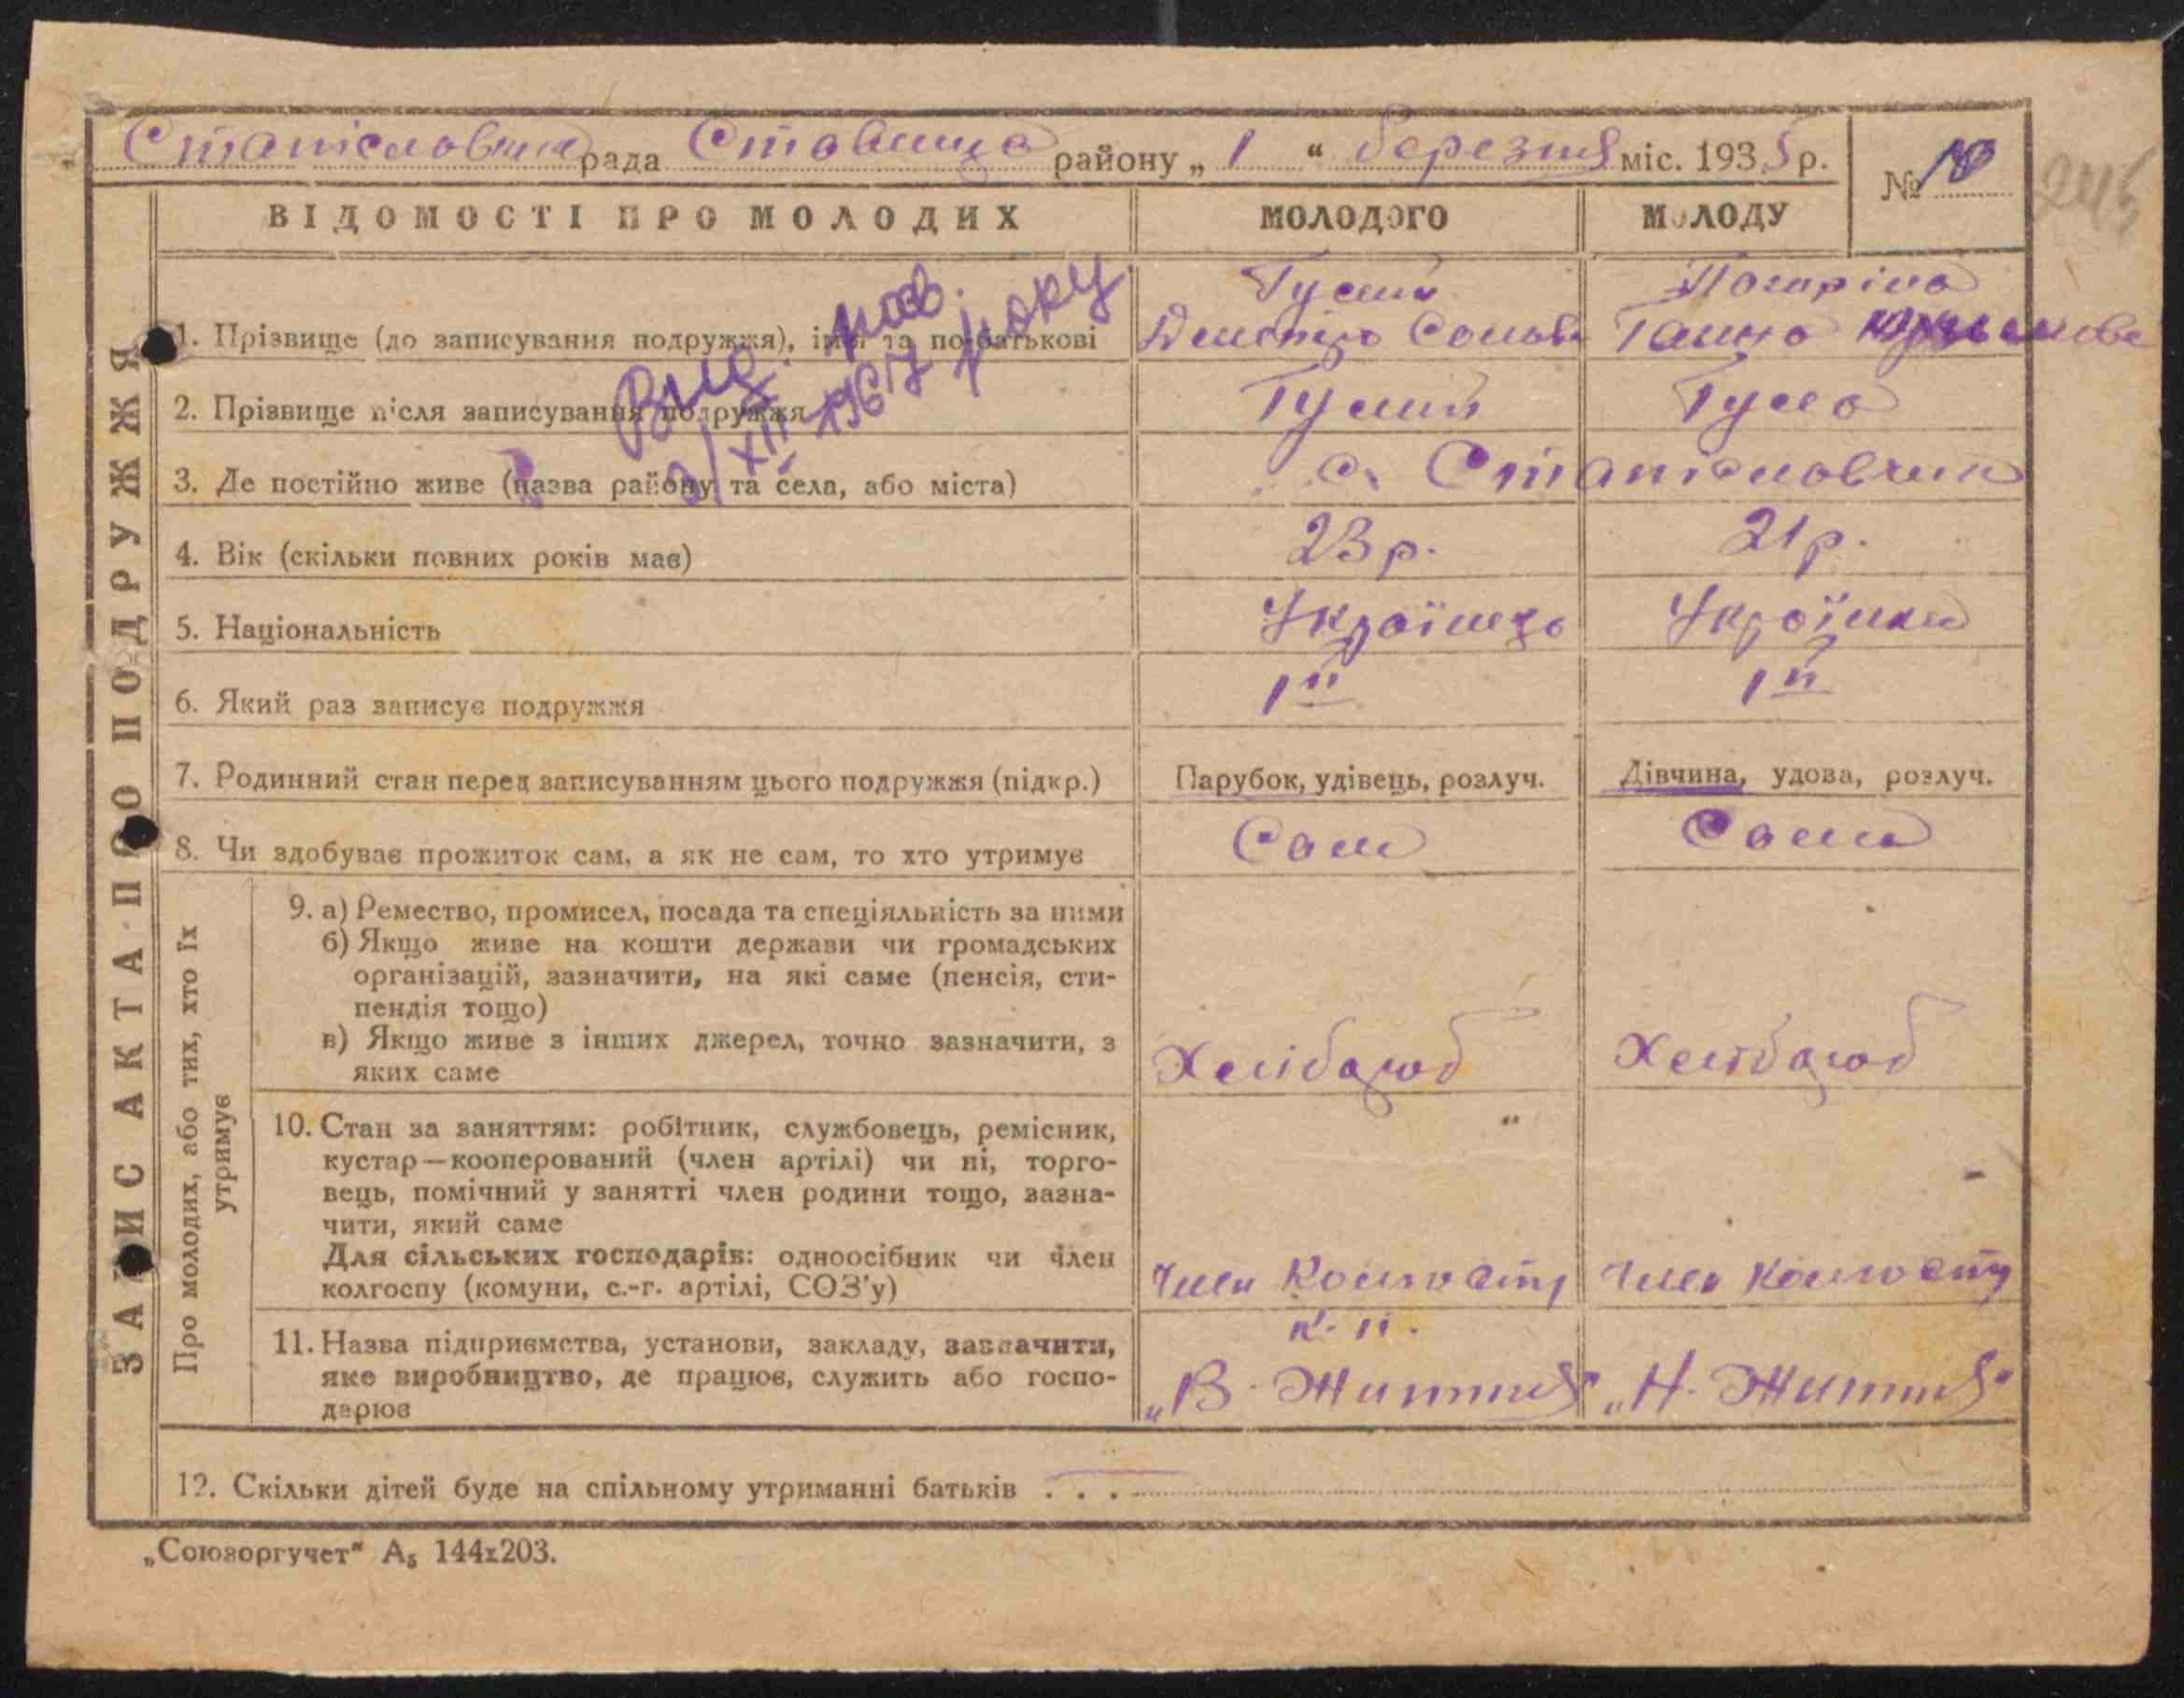 рада Ставище району „ 1 “ березня міс. 1935 р.
№ 10
245
ВІДОМОСТІ ПРО МОЛОДИХ МОЛОДОГО МОЛОДУ
ЗАПИС АКТА ПРО ПОДРУЖЖЯ
1. Прізвище (до записування подружжя), ім'я та по батькові
Гусий
Ганна
Вид. пов.
3/XII 1967 року
2. Прізвище після записування подружжя Гусий Гуса
3. Де постійно живе (назва району та села, або міста) с.
4. Вік (скільки повних років має) 23 р. 21 р.
5. Національність Українець Українка
6. Який раз записує подружжя 1й 1й
7. Родинний стан перед записуванням цього подружжя (підкр.) Парубок, удівець, розлуч. Дівчина, удова, розлуч.
8. Чи здобуває прожиток сам, а як не сам, то хто утримує Сам Сама
Про молодих, або тих, хто їх утримує
9. а) Ремество, промисел, посада та спеціяльність за ними
б) Якщо живе на кошти держави чи громадських
організацій, зазначити, на які саме (пенсія, сти-
пендія тощо)
в) Якщо живе з інших джерел, точно зазначити, з
яких саме
Хлібороб Хлібороб
10. Стан за заняттям: робітник, службовець, ремісник,
кустар — кооперований (член артілі) чи ні, торго-
вець, помічний у занятті член родини тощо, зазна-
чити, який саме
Для сільських господарів: одноосібник чи член
колгоспу (комуни, с.-г. артілі, СОЗ'у)
Член Колгоспу Член Колгоспу
11. Назва підприємства, установи, закладу, зазначити,
яке виробництво, де працює, служить або госпо-
дарює
„В. Життя“ „Н. Життя“
12. Скільки дітей буде на спільному утриманні батьків . . .
„Союзоргучет“ А5 144х203.